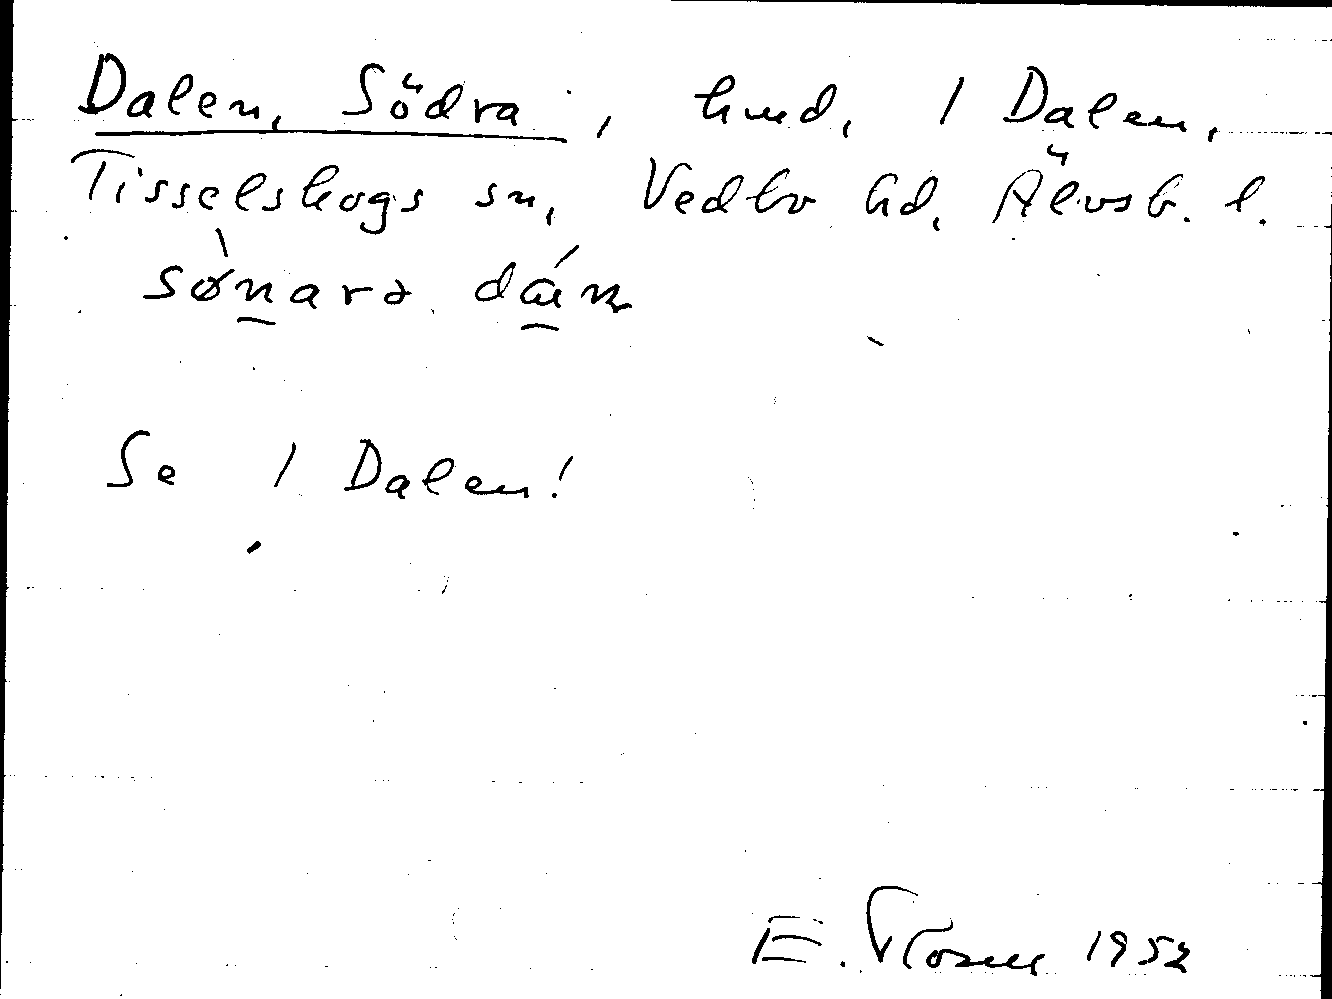 Dalen, Södra, hmd, 1 Dalen,
Tisselskogs sn, Vedbo hd, Älvsb. l.
Se 1 Dalen!
E. 1952